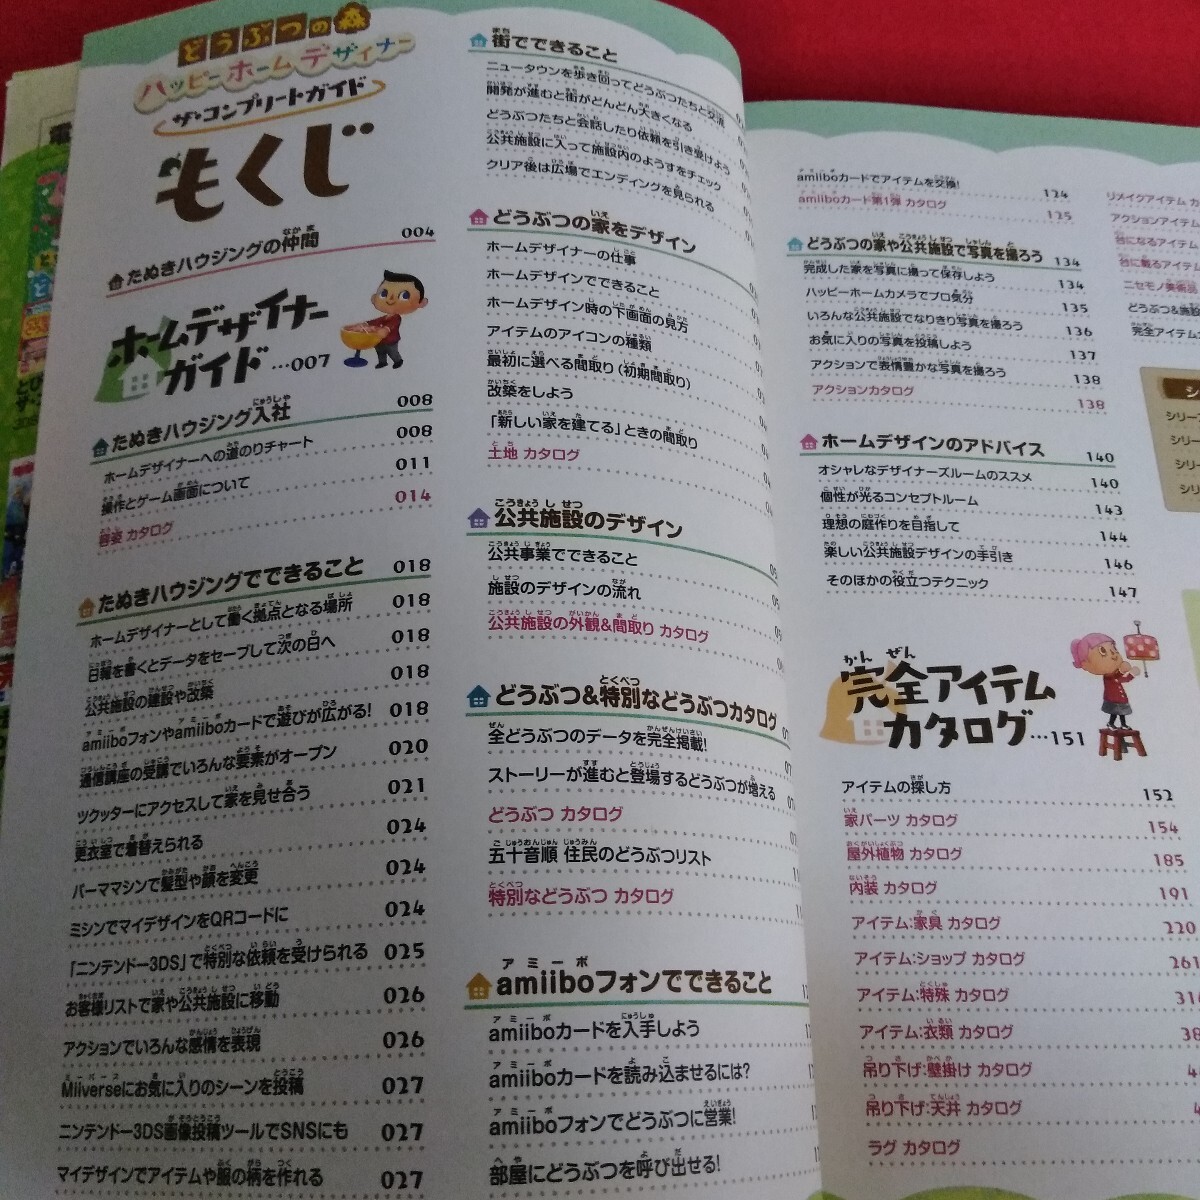 どうぶつの森
ハッピーホームデザイナー
ザ・コンプリートガイド
もくじ
たぬきハウジングの仲間 004
ホームデザイナー
ガイド…007
たぬきハウジング入社 008
ホームデザイナーへの道のりチャート 008
操作とゲーム画面について 011
容姿 カタログ 014
たぬきハウジングでできること 018
ホームデザイナーとして働く拠点となる場所 018
日報を書くとデータをセーブして次の日へ 018
公共施設の建設や改築 018
amiiboフォンやamiiboカードで遊びが広がる! 018
通信講座の受講でいろんな要素がオープン 020
ツクッターにアクセスして家を見せ合う 021
更衣室で着替えられる 024
パーママシンで髪型や顔を変更 024
ミシンでマイデザインをQRコードに 024
「ニンテンドー3DS」で特別な依頼を受けられる 025
お客様リストで家や公共施設に移動 026
アクションでいろんな感情を表現 026
Miiverseにお気に入りのシーンを投稿 027
ニンテンドー3DS画像投稿ツールでSNSにも 027
マイデザインでアイテムや服の柄を作れる 027
街でできること
ニュータウンを歩き回ってどうぶつたちと交流
開発が進むと街がどんどん大きくなる
どうぶつたちと会話したり依頼を引き受けよう
公共施設に入って施設内のようすをチェック
クリア後は広場でエンディングを見られる
どうぶつの家をデザイン
ホームデザイナーの仕事
ホームデザインでできること
ホームデザイン時の下画面の見方
アイテムのアイコンの種類
最初に選べる間取り(初期間取り)
改築をしよう
「新しい家を建てる」ときの間取り
土地 カタログ
公共施設のデザイン
公共事業でできること
施設のデザインの流れ
公共施設の外観&間取り カタログ
どうぶつ&特別などうぶつカタログ
全どうぶつのデータを完全掲載!
ストーリーが進むと登場するどうぶつが増える
どうぶつ カタログ
五十音順 住民のどうぶつリスト
特別などうぶつ カタログ
amiiboフォンでできること
amiiboカードを入手しよう
amiiboカードを読み込ませるには?
amiiboフォンでどうぶつに営業!
部屋にどうぶつを呼び出せる!
amiiboカードでアイテムを交換! 124
amiiboカード第1弾 カタログ 125
どうぶつの家や公共施設で写真を撮ろう 134
完成した家を写真に撮って保存しよう 134
ハッピーホームカメラでプロ気分 135
いろんな公共施設でなりきり写真を撮ろう 136
お気に入りの写真を投稿しよう 137
アクションで表情豊かな写真を撮ろう 138
アクションカタログ 138
ホームデザインのアドバイス 140
オシャレなデザイナーズルームのススメ 140
個性が光るコンセプトルーム 143
理想の庭作りを目指して 144
楽しい公共施設デザインの手引き 146
そのほかの役立つテクニック 147
完全アイテム
カタログ…151
アイテムの探し方 152
家パーツ カタログ 154
屋外植物 カタログ 185
内装 カタログ 191
アイテム:家具 カタログ 220
アイテム:ショップ カタログ 261
アイテム:特殊 カタログ
アイテム:衣類 カタログ
吊り下げ:壁掛け カタログ
吊り下げ:天井 カタログ
ラグ カタログ
リメイクアイテム
アクションアイテム
台になるアイテム
台に載るアイテム
ニセモノ美術品
どうぶつ&施設
完全アイテム
シリー
シリー
シリー
シリ